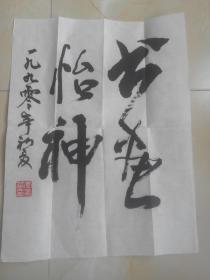 书画
怡神
一九九零年初夏